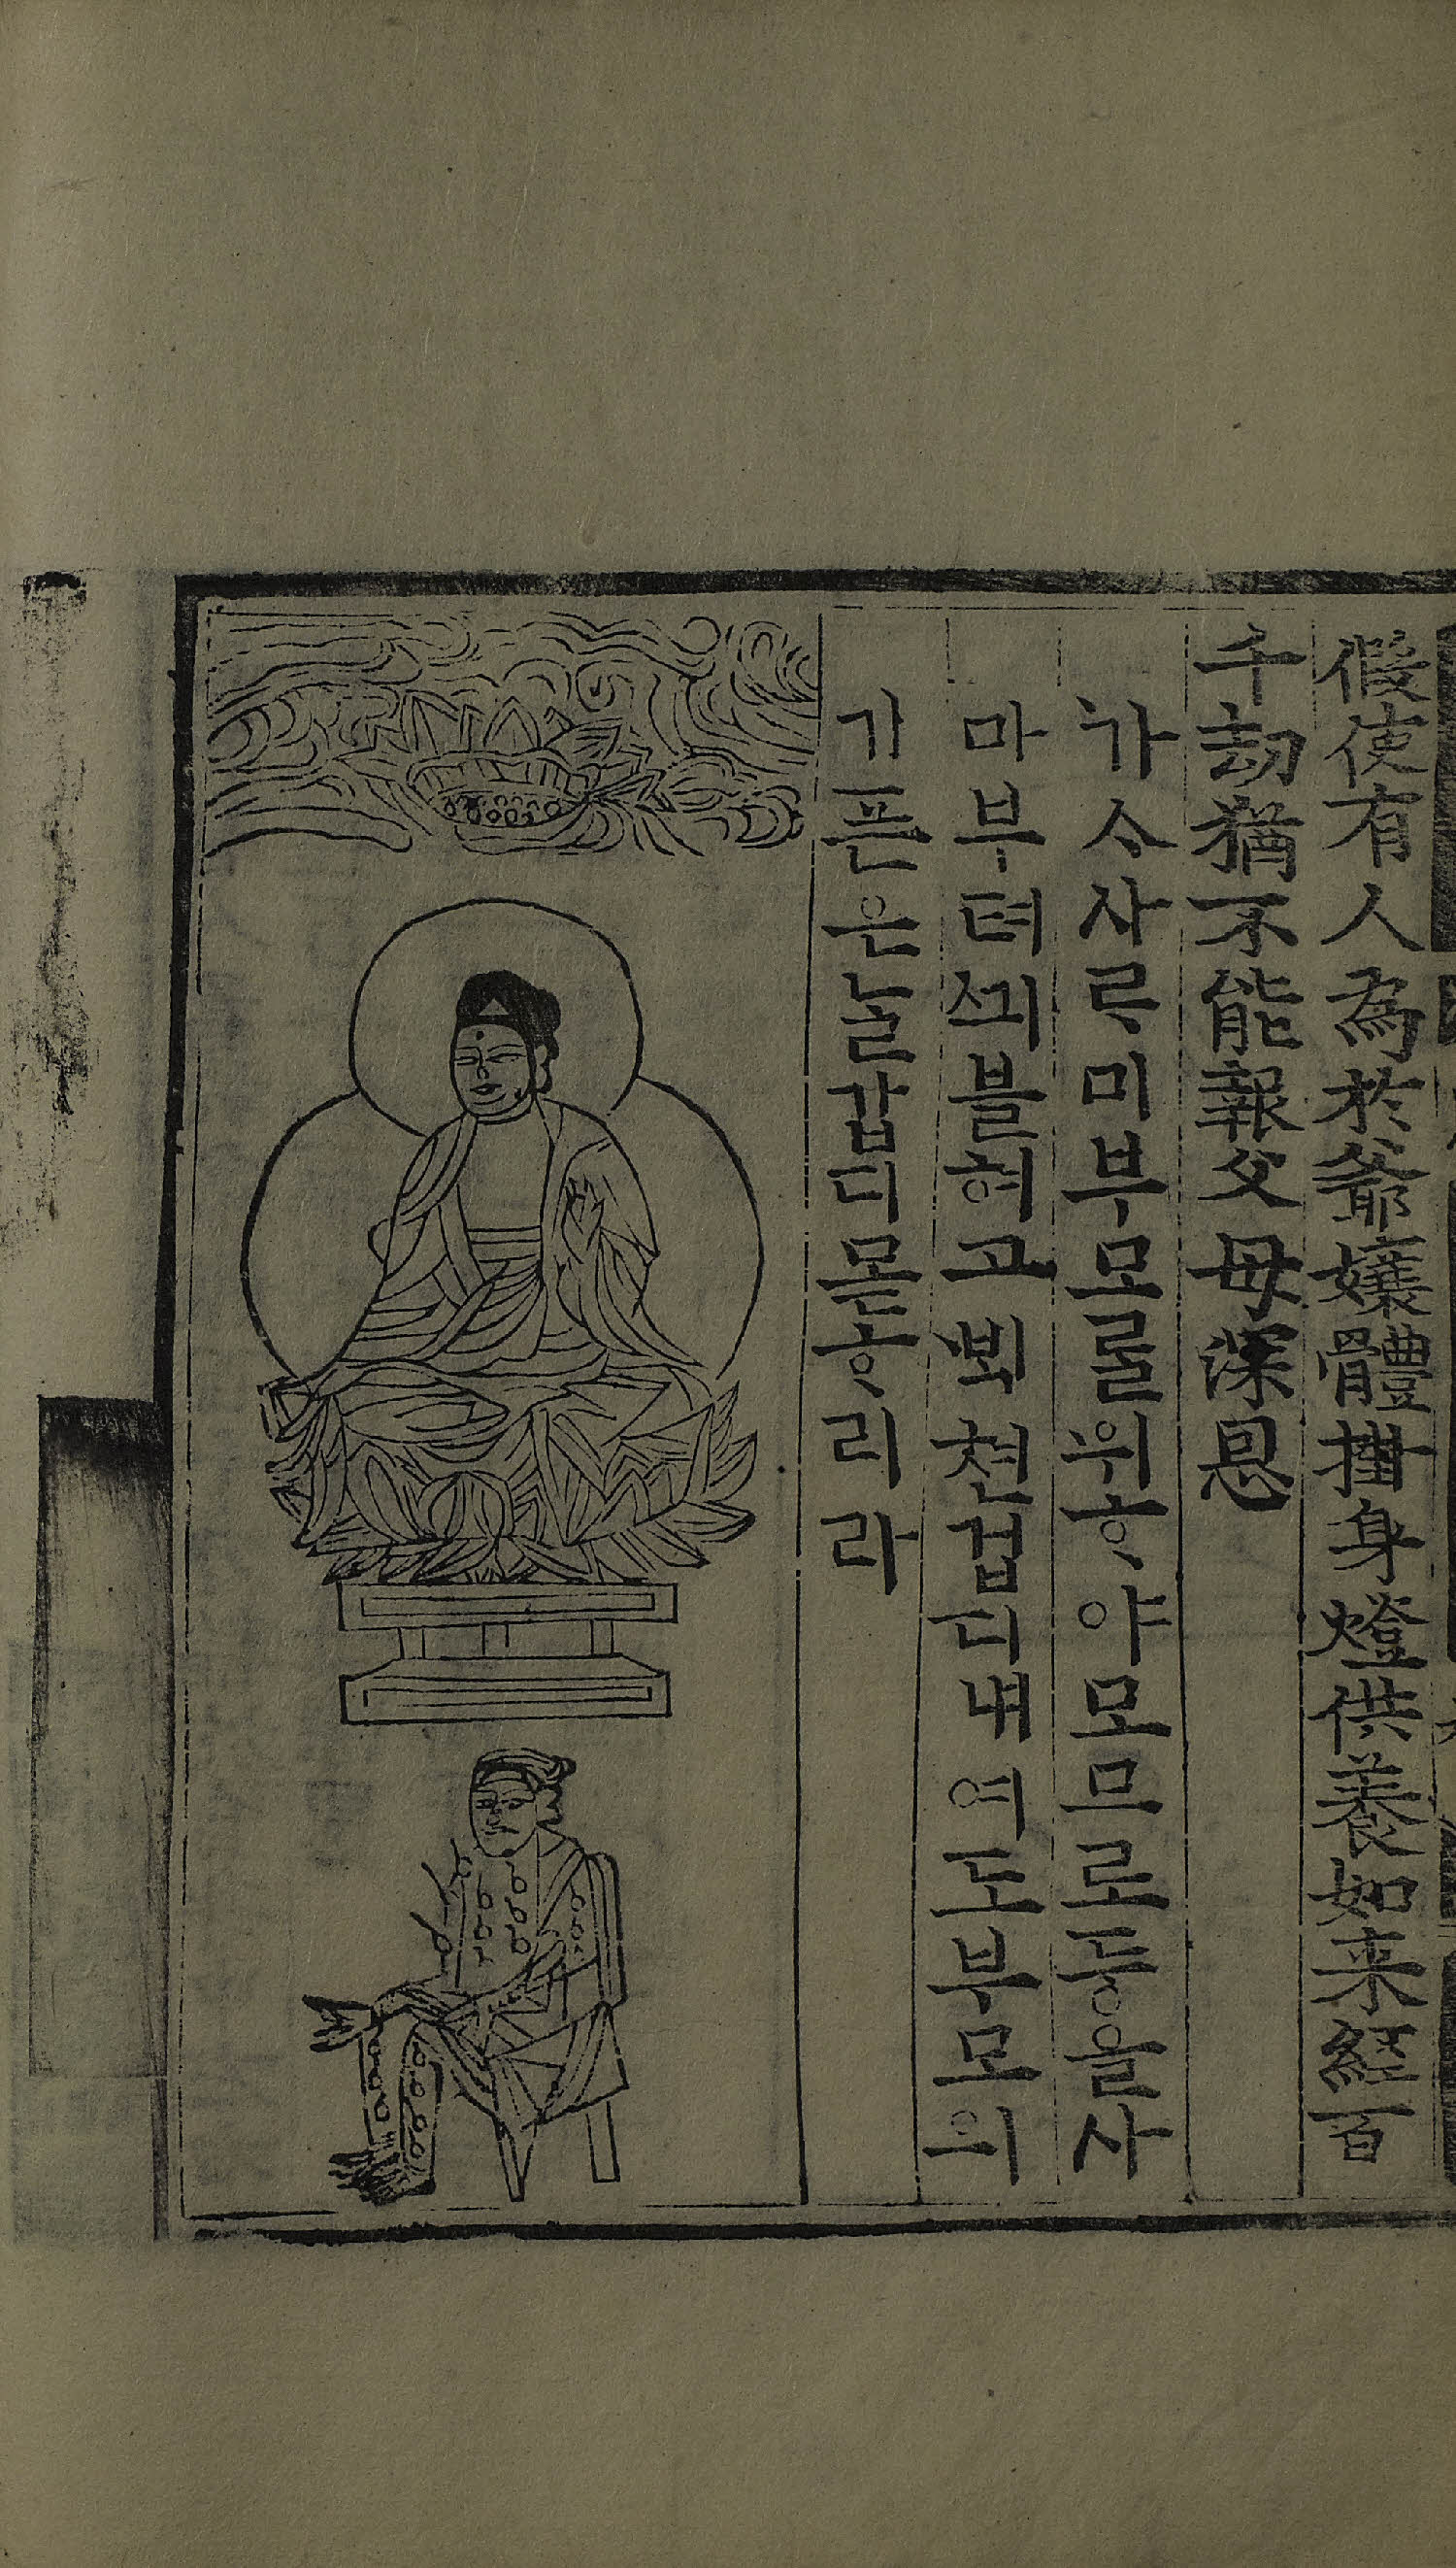 假使有人為於爺孃體掛身燈供養如来経百
千刼猶不能報父母深恩
가ᄉᆞ사ᄅᆞ미부모ᄅᆞᆯ위ᄒᆞ야모므로등을사
마부텨ᄭᅴ블혀고ᄇᆡᆨ쳔겁디내여도부모의
기픈은늘갑디몯ᄒᆞ리라